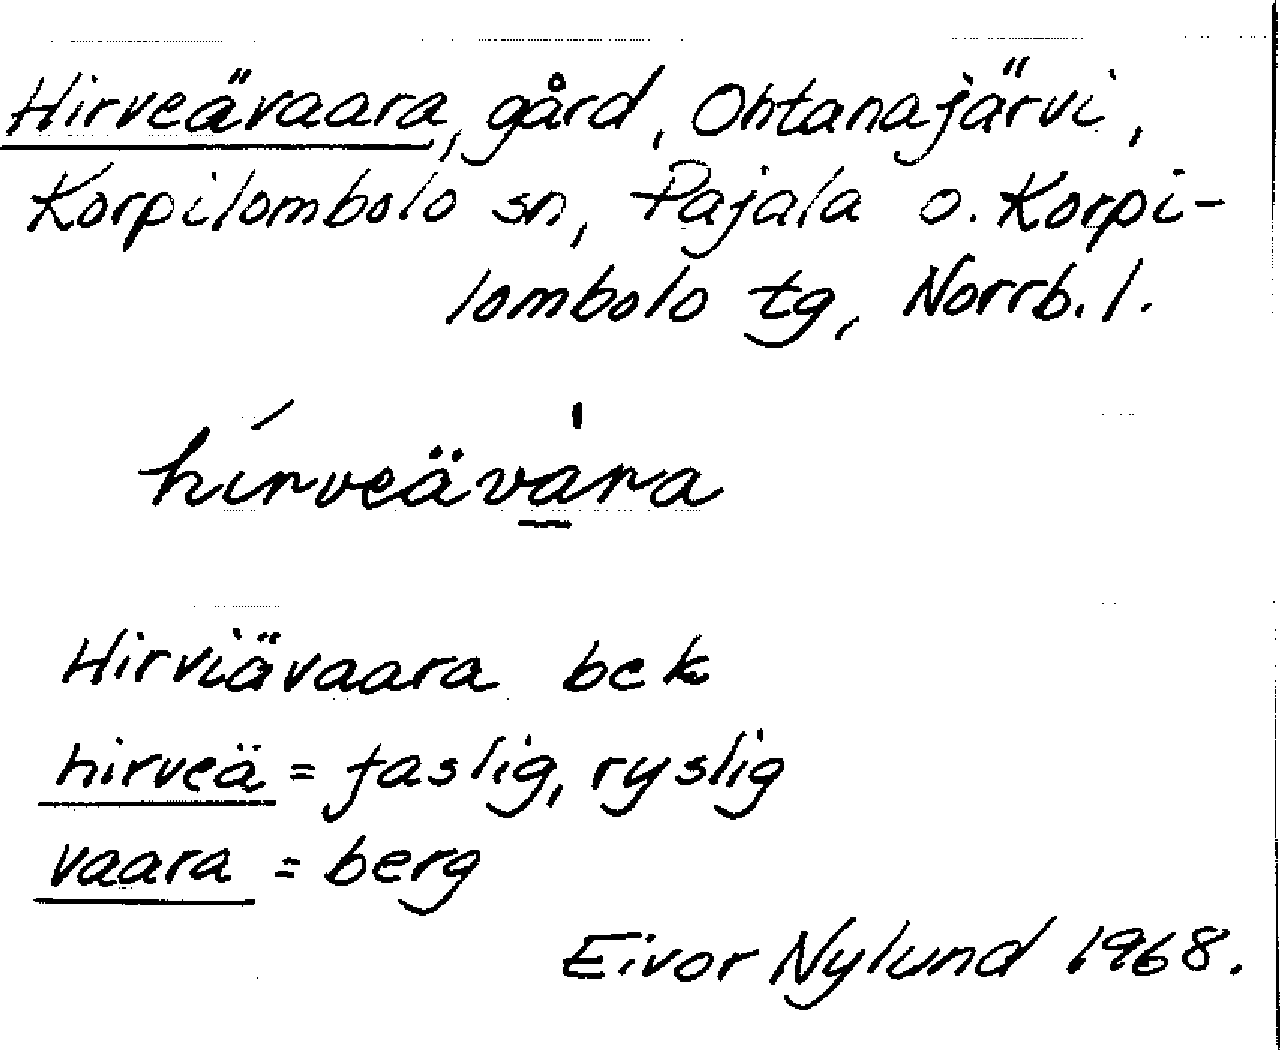 Hirveävaara, gård, Ohtanajärvi,
Korpilombolo sn, Pajala o. Korpi-
lombolo tg, Norrb. l.
hírveävàra
Hirviävaara bek
hirveä = faslig, ryslig
vaara = berg
Eivor Nylund 1968.